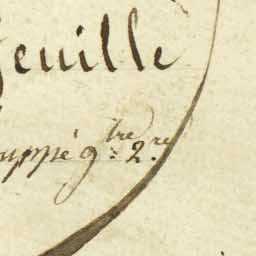 feuille
uppé 9.tre 2.re